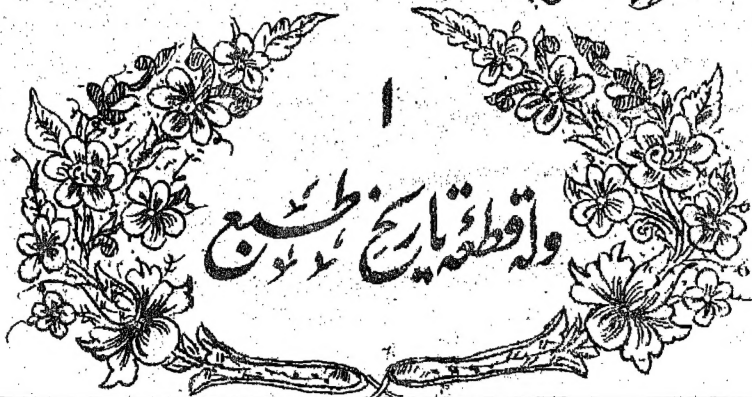 ا
وله قطعۂ تاریخ طبع